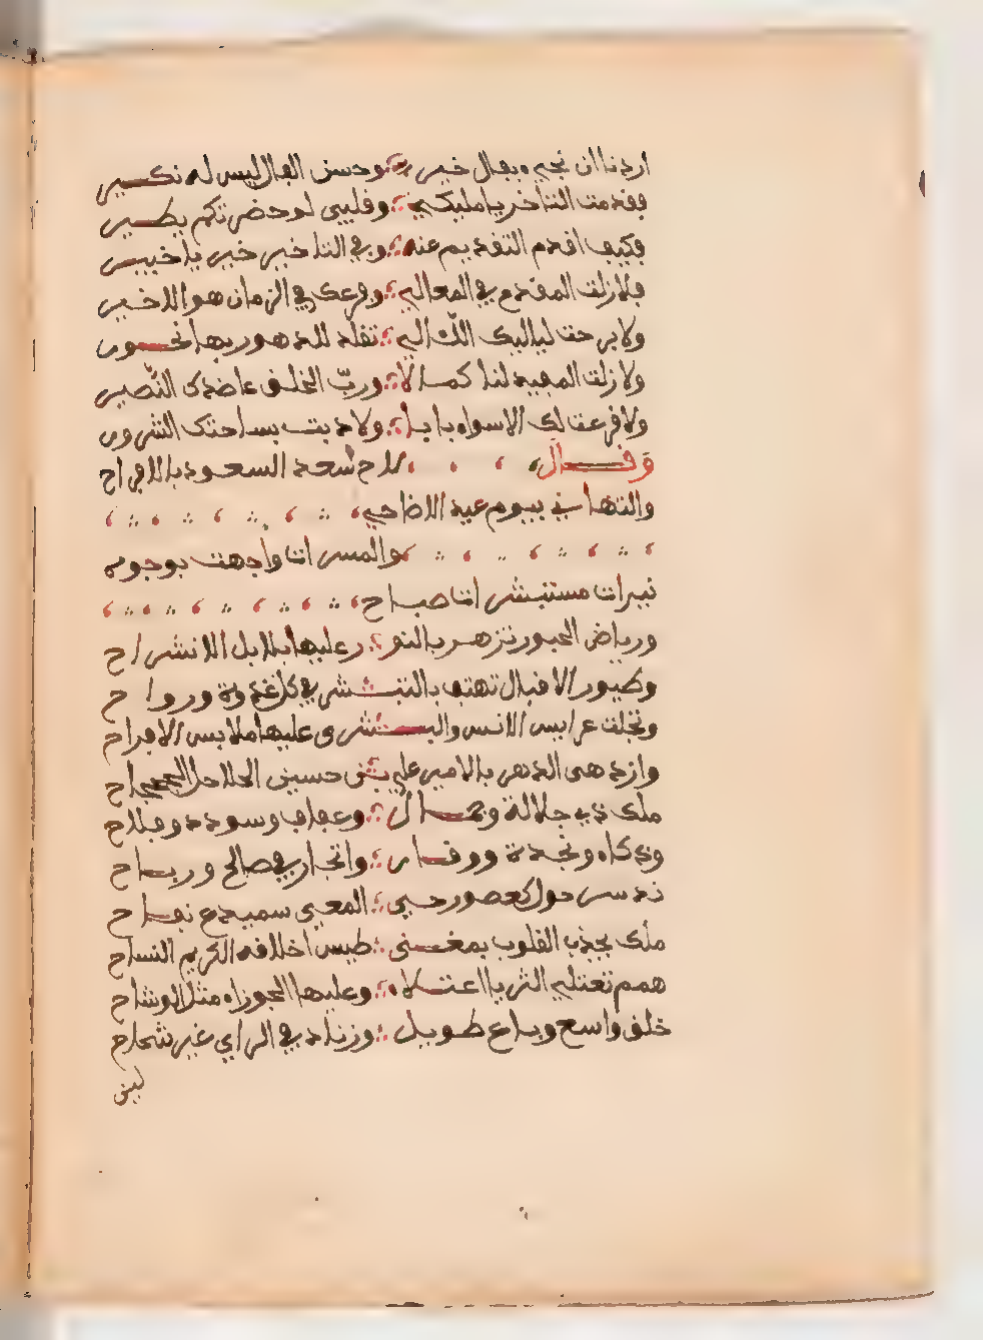 اردنا ان نجيء بفال خير ؞ وحسن الفال ليس له نكير
فقدمت التاخر يا مليكي ؞ وقلبي لو حضرتكم يطير
فكيف اقدم التقديم عنه ؞ وفي التاخير خير يا خبير
فلا زلت المقدم في المعالي ؞ وفرعك في الزمان هو الاخير
ولا برحت لياليك الئالي ؞ تقلد للدهور بها نحور
ولا زلت المفيد لنا كمالا ؞ وربّ الخلق عاضدك النّصير
ولا قرعت لك الاسواء بابا ؞ ولا دبت بساحتك الشرور
وقال لاح سعد السعود بالافراح
والتهاني بيوم عيد الاضاحي
والمسرات واجهت بوجوه
نيرات مستبشرات صباح
ورياض الحبور تزهر بالنو ؞ ر عليها بلابل الانشراح
وطيور الاقبال تهتف بالتبشر في كل غدوة ورواح
وتجلت عرايس الانس والبشرى عليها ملابس الافراح
وازدهى الدهر بالامير علي بن حسين الحلاحل الجحجاح
ملك ذي جلالة وجمال ؞ وعفاف وسودد وفلاح
وذكاء ونجدة ووقار ؞ واتجار في صالح ورباح
ندس حول كعصور حيي ؞ المعي سميدع نفاح
ملك يجذب القلوب بمغنى ؞ طيس اخلاقه الكريم النساح
همم تعتلي الثريا اعتلاء ؞ وعليها الجوزاء مثل الوشاح
خلق واسع وباع طويل ؞ وزناد في الراي غير شحاح
لين